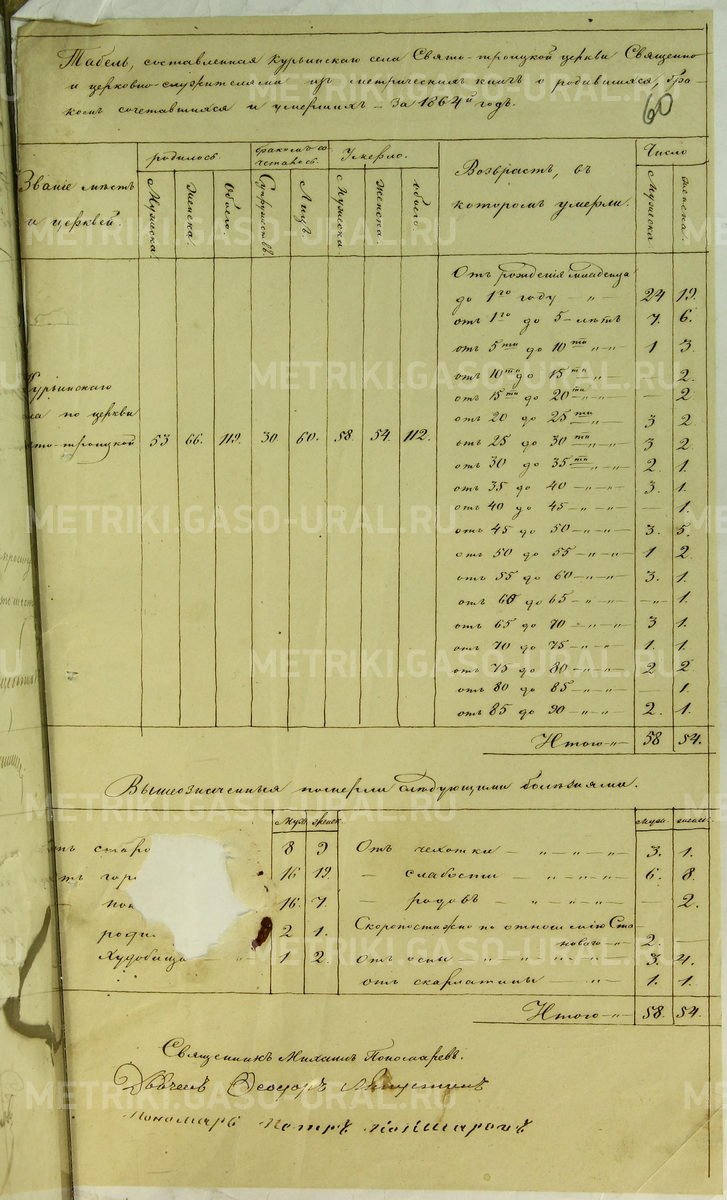 Табель, составленная Курьинскаго села Свято-троицкой церкви Священно
и церковно-служителями изъ метрическихъ книгъ о родившихся, бра
комъ сочетавшихся и умершихъ – За 1864й годъ.
60
Званіе мѣстъ
и церквей.
родилось.
Мужеска.
Женска.
Обоего.
бракомъ со
четалось.
Супружествъ
Лицъ.
Умерло.
Мужеска.
женска.
обоего.
Возврастъ, въ
которомъ умерли.
Число
Мужеска.
женска.
Курьинскаго
ла по церкви
ято-троицкой 53 66. 119. 30. 60. 58. 54. 112.
Отъ рожденія младенца
до 1го году – „ – 24 19.
отъ 1го до 5 – лѣтъ 7. 6.
отъ 5ти до 10ти „ – „ – 1 3.
отъ 10ти до 15ти „ – – 2.
отъ 15ти до 20ти – „ – „ – 2
отъ 20 до 25ти 3 2
отъ 25 до 30ти – „ – „ 3 2
отъ 30 до 35ти – „ – „ 2. 1.
отъ 35 до 40 – „ – „ – 3. 1.
отъ 40 до 45 – „ – „ – – 1.
отъ 45 до 50 – „ – „ – 3. 5.
отъ 50 до 55 – „ – „ – 1 2.
отъ 55 до 60 – „ – „ – 3. 1.
отъ 60 до 65 – „ – „ – – „ – 1.
отъ 65 до 70 – „ – „ – 3 1.
отъ 70 до 75 – „ – „ – 1. 1.
отъ 75 до 80 – „ – „ – 2 2
отъ 80 до 85 – „ – „ – – 1.
отъ 85 до 90 – „ – „ – 2. 1.
Итого – „ – 58 54.
Вышеозначенныя померли слѣдующими болѣзнями.
Муж. женск.
ъ старо 8 9
тъ гор 16 19.
– по 16. 7.
роди 2 1.
Худобища „ 1 2.
муж. женск.
Отъ чехотки – „ – „ – „ – 3. 1.
– слабости – „ – „ – „ – 6. 8.
– родовъ – „ – „ – „ – – 2.
Скоропостижно по отношенію Ста
новаго – „ – 2. –
Отъ оспы „ – „ – „ – „ – 3. 4.
отъ скарлатины – „ – 1. 1.
Итого – „ – 58. 54.
Священникъ Михаилъ Пономаревъ.
Дьячекъ Ѳеодоръ
Пономарь Петръ
METRIKI.GASO-URAL.RU